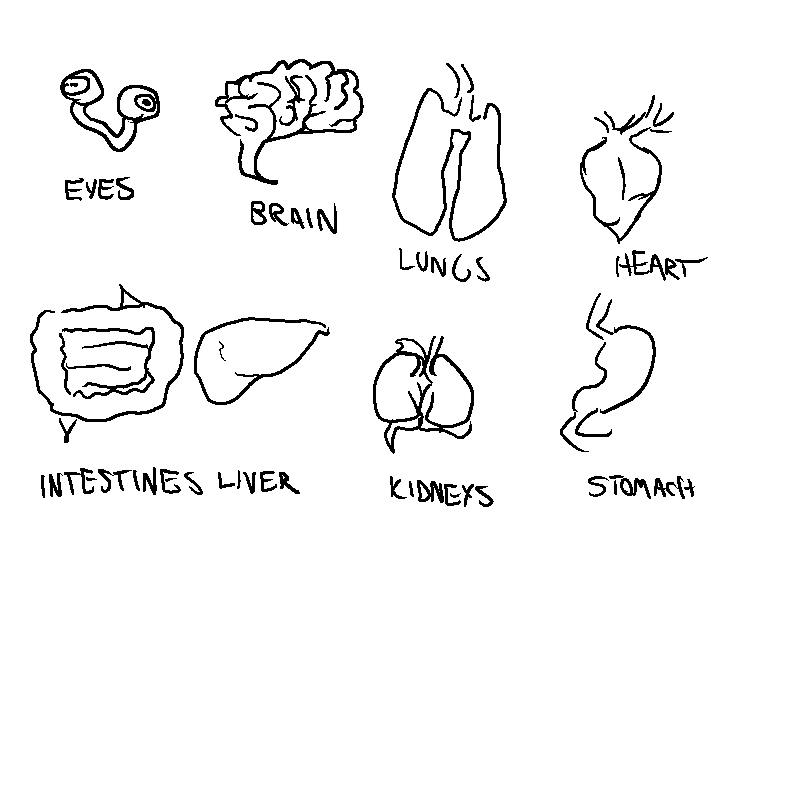 EYES
BRAIN
LUNGS
HEART
INTESTINES
LIVER
KIDNEYS
STOMACH